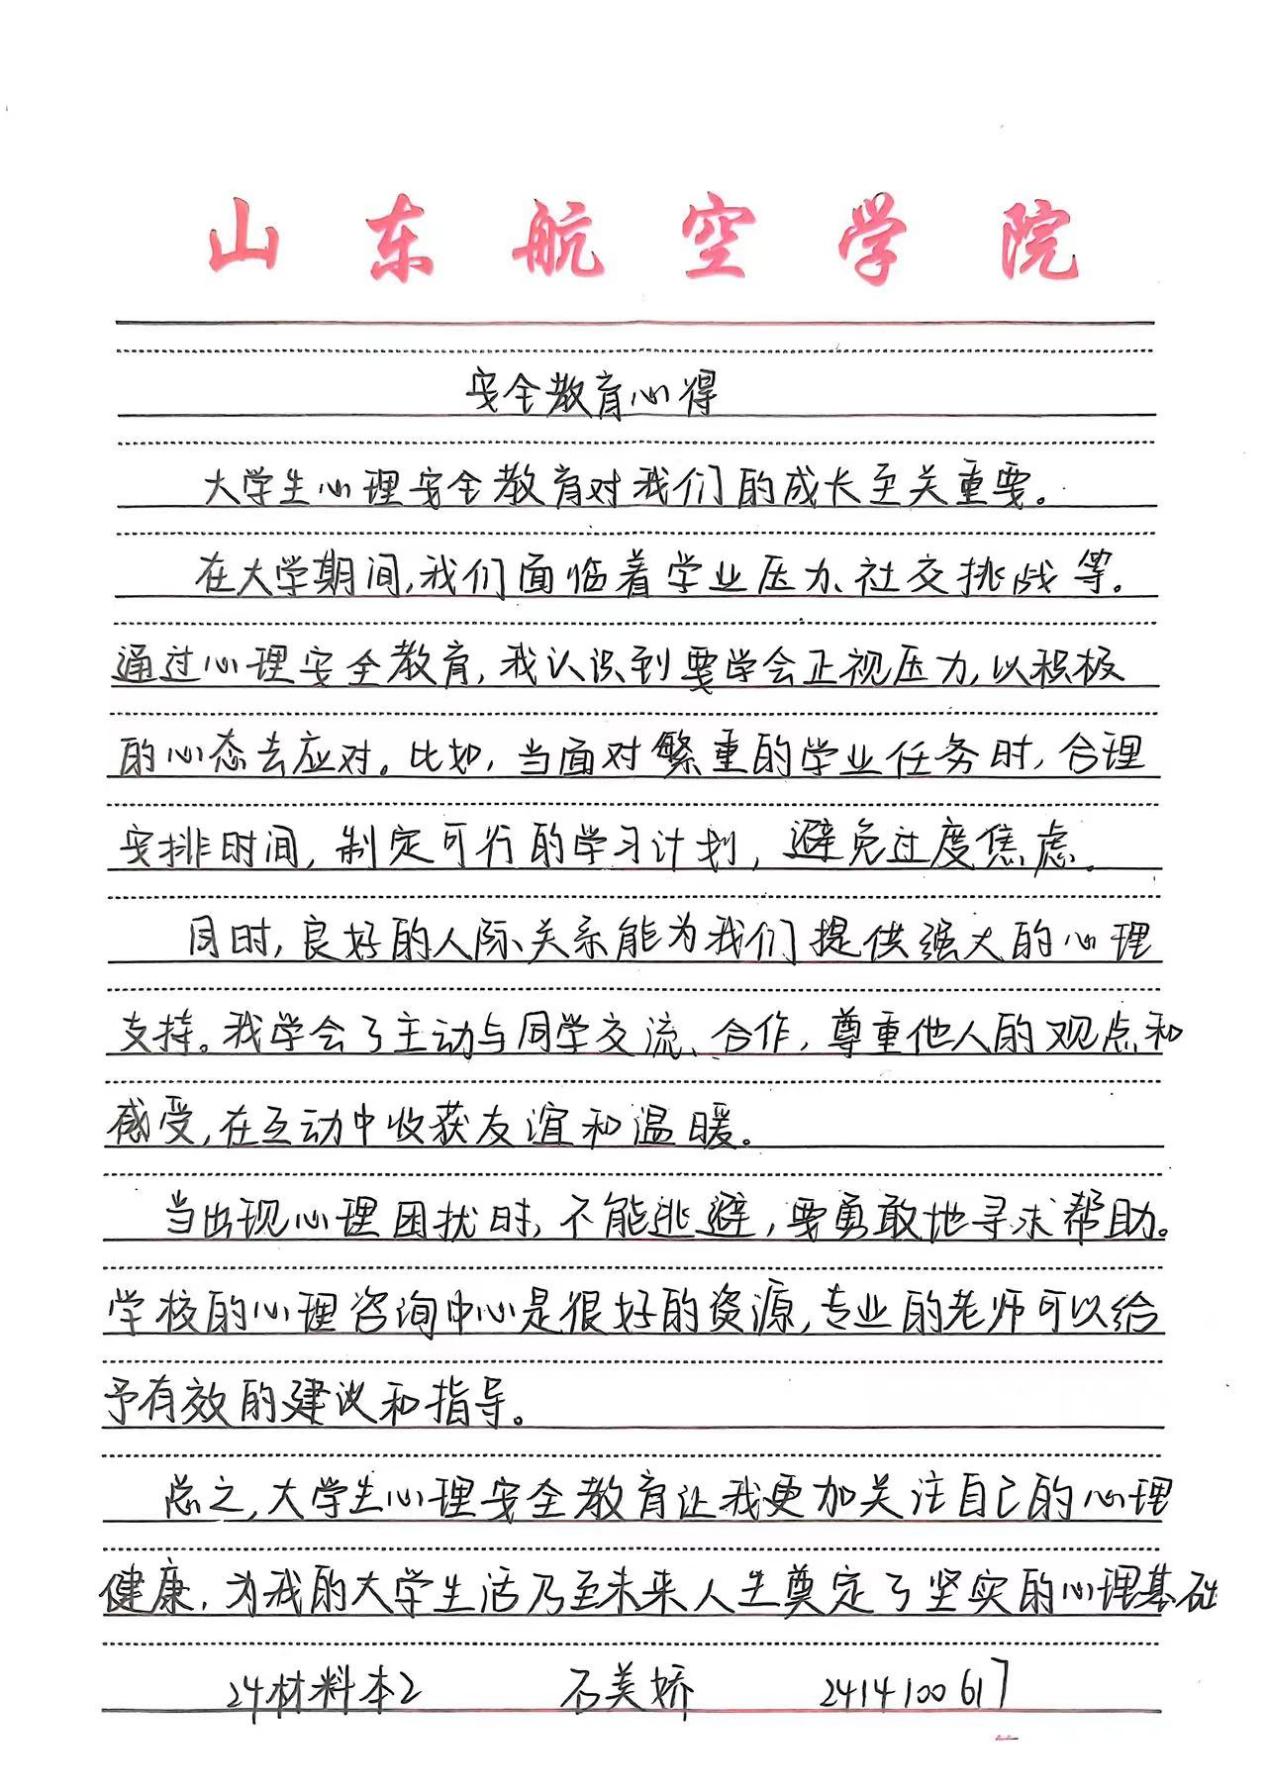 山东航空学院
安全教育心得
大学生心理安全教育对我们的成长至关重要。
在大学期间,我们面临着学业压力、社交挑战等。
通过心理安全教育,我认识到要学会正视压力,以积极
的心态去应对。比如,当面对繁重的学业任务时,合理
安排时间,制定可行的学习计划,避免过度焦虑。
同时,良好的人际关系能为我们提供强大的心理
支持。我学会了主动与同学交流、合作,尊重他人的观点和
感受,在互动中收获友谊和温暖。
当出现心理困扰时,不能逃避,要勇敢地寻求帮助。
学校的心理咨询中心是很好的资源,专业的老师可以给
予有效的建议和指导。
总之,大学生心理安全教育让我更加关注自己的心理
健康,为我的大学生活乃至未来人生奠定了坚实的心理基础
24材料本2 石美娇 2414100617